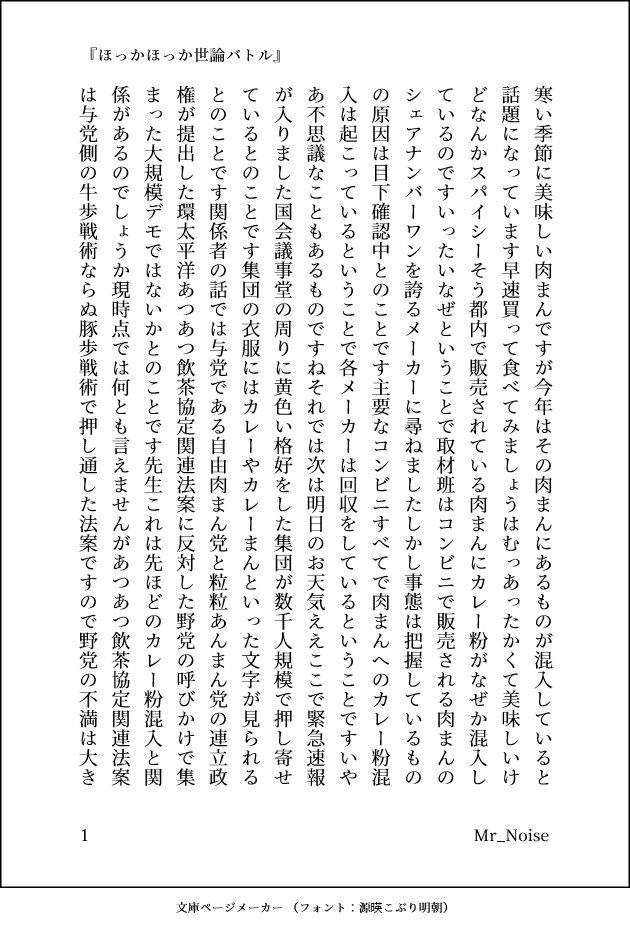 『ほっかほっか世論バトル』
寒い季節に美味しい肉まんですが今年はその肉まんにあるものが混入していると
話題になっています早速買って食べてみましょうはむっあったかくて美味しいけ
どなんかスパイシーそう都内で販売されている肉まんにカレー粉がなぜか混入し
ているのですいったいなぜということで取材班はコンビニで販売される肉まんの
シェアナンバーワンを誇るメーカーに尋ねましたしかし事態は把握しているもの
の原因は目下確認中とのことです主要なコンビニすべてで肉まんへのカレー粉混
入は起こっているということで各メーカーは回収をしているということですいや
あ不思議なこともあるものですねそれでは次は明日のお天気ええここで緊急速報
が入りました国会議事堂の周りに黄色い格好をした集団が数千人規模で押し寄せ
ているとのことです集団の衣服にはカレーやカレーまんといった文字が見られる
とのことです関係者の話では与党である自由肉まん党と粒粒あんまん党の連立政
権が提出した環太平洋あつあつ飲茶協定関連法案に反対した野党の呼びかけで集
まった大規模デモではないかとのことです先生これは先ほどのカレー粉混入と関
係があるのでしょうか現時点では何とも言えませんがあつあつ飲茶協定関連法案
は与党側の牛歩戦術ならぬ豚歩戦術で押し通した法案ですので野党の不満は大き
Mr_Noise
1
文庫ページメーカー（フォント：源暎こぶり明朝）